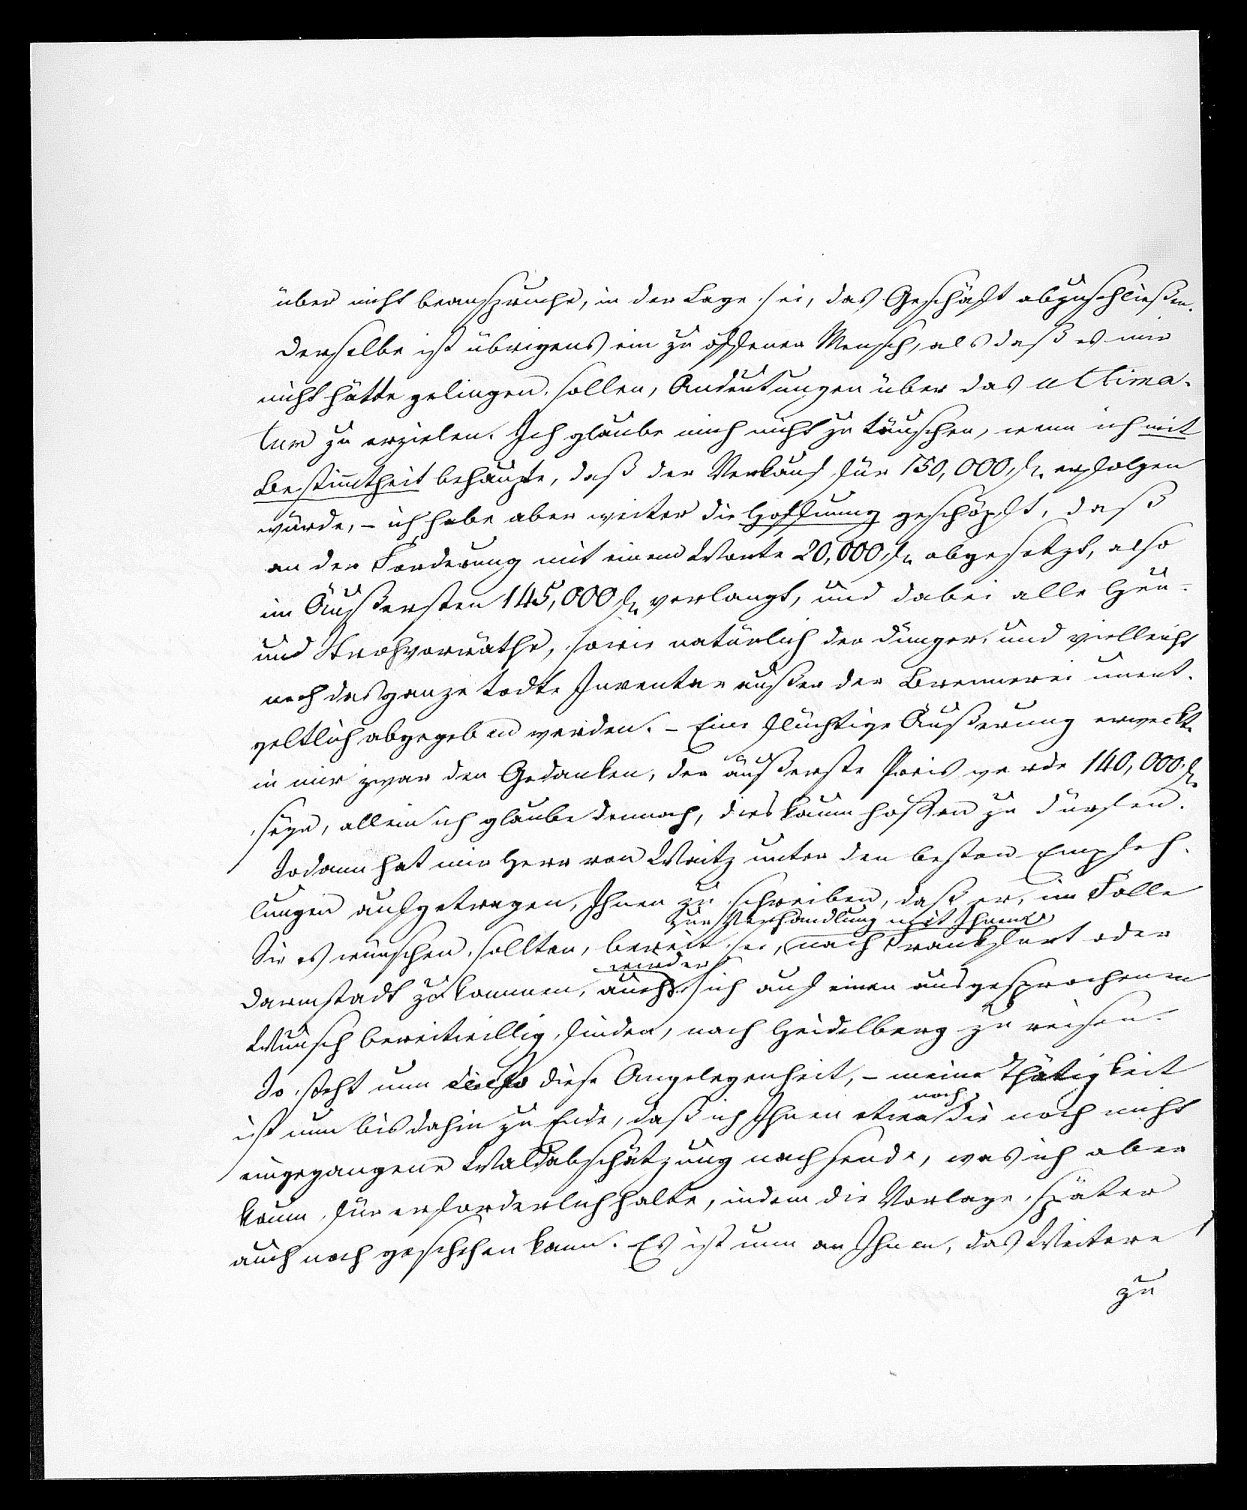 über nicht beanspruche, in der Lage sei, das Geschäft abzuschließen.
Derselbe ist übrigens ein zu offener Mensch, als daß es mir
nicht hätte gelingen sollen, Andeutungen über das ultima-
tum zu erzielen. Ich glaube mich nicht zu täuschen, wenn ich mit
Bestimmtheit behaupte, daß der Verkauf für 150,000 fl. erfolgen
würde, – ich habe aber weiter die Hoffnung geschöpft, daß
an der Forderung mit einem Worte 20,000 fl. abgesetzt, also
im Äußersten 145,000 fl. verlangt, und dabei alle Heu-
und Strohvorräthe, sowie natürlich der Dünger, und vielleicht
noch das ganze todte Inventar außer der Brennerei unent-
geltlich abgegeben werden. – Eine flüchtige Äußerung erweckte
in mir zwar den Gedanken, der äußerste Preis werde 140,000 fl.
seyn, allein ich glaube dennoch, dies kaum hoffen zu dürfen.
Sodann hat mir Herr von Waitz unter den besten Empfeh-
lungen aufgetragen, Ihnen zu schreiben, daß er, im Falle
zur Verhandlung mit Ihnen
Sie es wünschen sollten, bereit sei, nach Frankfurt oder
würde er
Darmstadt zu kommen, auch sich auf einen ausgesprochenen
Wunsch bereitwillig finden, nach Heidelberg zu reisen.
So steht nun diese Angelegenheit, – meine Thätigkeit
noch
ist nun bis dahin zu Ende, daß ich Ihnen etwa die noch nicht
eingegangene Waldabschätzung nachsende, was ich aber
kaum für erforderlich halte, indem die Vorlage später
auch noch geschehen kann. Es ist nun an Ihnen, das Weitere
zu